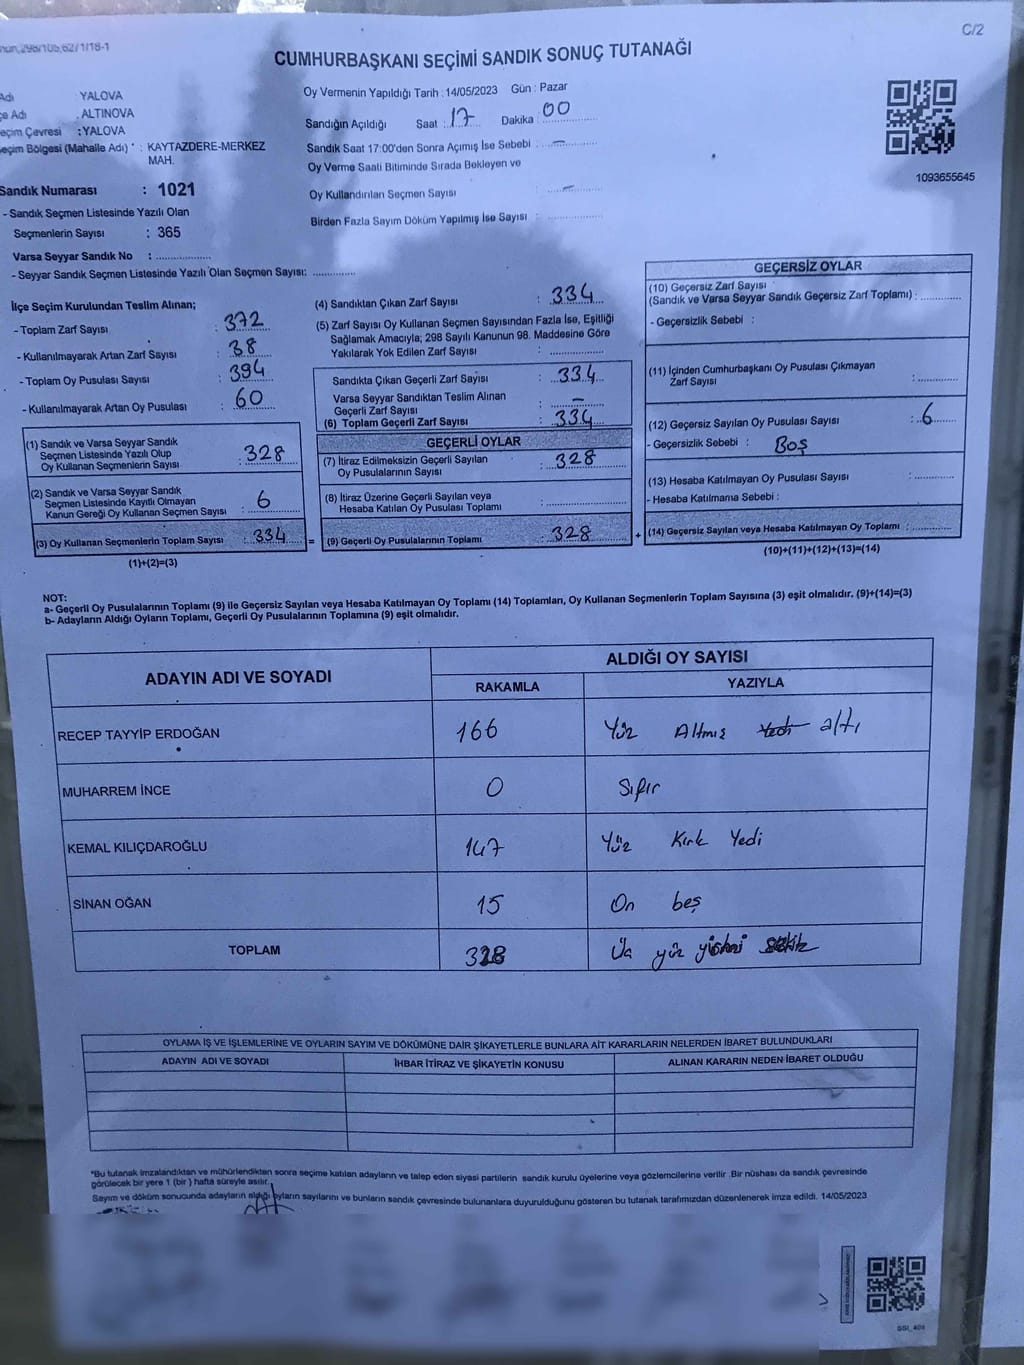 C/2
CUMHURBAŞKANI SEÇİMİ SANDIK SONUÇ TUTANAĞI
Adı : YALOVA
çe Adı : ALTINOVA
eçim Çevresi : YALOVA
eçim Bölgesi (Mahalle Adı) * : KAYTAZDERE-MERKEZ
MAH.
Sandık Numarası : 1021
- Sandık Seçmen Listesinde Yazılı Olan
Seçmenlerin Sayısı : 365
Varsa Seyyar Sandık No :
- Seyyar Sandık Seçmen Listesinde Yazılı Olan Seçmen Sayısı:
Oy Vermenin Yapıldığı Tarih : 14/05/2023 Gün : Pazar
Sandığın Açıldığı Saat : 17 Dakika : 00
Sandık Saat 17:00'den Sonra Açımış İse Sebebi : –
Oy Verme Saati Bitiminde Sırada Bekleyen ve
Oy Kullandırılan Seçmen Sayısı : –
Birden Fazla Sayım Döküm Yapılmış İse Sayısı :
1093655645
İlçe Seçim Kurulundan Teslim Alınan;
- Toplam Zarf Sayısı : 372
- Kullanılmayarak Artan Zarf Sayısı : 38
- Toplam Oy Pusulası Sayısı : 394
- Kullanılmayarak Artan Oy Pusulası : 60
(1) Sandık ve Varsa Seyyar Sandık
Seçmen Listesinde Yazılı Olup
Oy Kullanan Seçmenlerin Sayısı : 328
(2) Sandık ve Varsa Seyyar Sandık
Seçmen Listesinde Kayıtlı Olmayan
Kanun Gereği Oy Kullanan Seçmen Sayısı : 6
(3) Oy Kullanan Seçmenlerin Toplam Sayısı : 334 =
(1)+(2)=(3)
(4) Sandıktan Çıkan Zarf Sayısı : 334
(5) Zarf Sayısı Oy Kullanan Seçmen Sayısından Fazla İse, Eşitliği
Sağlamak Amacıyla; 298 Sayılı Kanunun 98. Maddesine Göre
Yakılarak Yok Edilen Zarf Sayısı :
Sandıkta Çıkan Geçerli Zarf Sayısı : 334
Varsa Seyyar Sandıktan Teslim Alınan
Geçerli Zarf Sayısı : –
(6) Toplam Geçerli Zarf Sayısı : 334
GEÇERLİ OYLAR
(7) İtiraz Edilmeksizin Geçerli Sayılan
Oy Pusulalarının Sayısı : 328
(8) İtiraz Üzerine Geçerli Sayılan veya
Hesaba Katılan Oy Pusulası Toplamı :
(9) Geçerli Oy Pusulalarının Toplamı : 328 +
GEÇERSİZ OYLAR
(10) Geçersiz Zarf Sayısı
(Sandık ve Varsa Seyyar Sandık Geçersiz Zarf Toplamı) :
- Geçersizlik Sebebi :
(11) İçinden Cumhurbaşkanı Oy Pusulası Çıkmayan
Zarf Sayısı :
(12) Geçersiz Sayılan Oy Pusulası Sayısı : 6
- Geçersizlik Sebebi : Boş
(13) Hesaba Katılmayan Oy Pusulası Sayısı :
- Hesaba Katılmama Sebebi :
(14) Geçersiz Sayılan veya Hesaba Katılmayan Oy Toplamı :
(10)+(11)+(12)+(13)=(14)
NOT:
a- Geçerli Oy Pusulalarının Toplamı (9) ile Geçersiz Sayılan veya Hesaba Katılmayan Oy Toplamı (14) Toplamları, Oy Kullanan Seçmenlerin Toplam Sayısına (3) eşit olmalıdır. (9)+(14)=(3)
b- Adayların Aldığı Oyların Toplamı, Geçerli Oy Pusulalarının Toplamına (9) eşit olmalıdır.
ADAYIN ADI VE SOYADI
ALDIĞI OY SAYISI
RAKAMLA YAZIYLA
RECEP TAYYİP ERDOĞAN 166 Yüz Altmış yedi altı
MUHARREM İNCE 0 Sıfır
KEMAL KILIÇDAROĞLU 147 Yüz Kırk Yedi
SİNAN OĞAN 15 On beş
TOPLAM 328 Üç yüz yirmi sekiz
OYLAMA İŞ VE İŞLEMLERİNE VE OYLARIN SAYIM VE DÖKÜMÜNE DAİR ŞİKAYETLERLE BUNLARA AİT KARARLARIN NELERDEN İBARET BULUNDUKLARI
ADAYIN ADI VE SOYADI İHBAR İTİRAZ VE ŞİKAYETİN KONUSU ALINAN KARARIN NEDEN İBARET OLDUĞU
*Bu tutanak imzalandıktan ve mühürlendikten sonra seçime katılan adayların ve talep eden siyasi partilerin sandık kurulu üyelerine veya gözlemcilerine verilir .Bir nüshası da sandık çevresinde
görülecek bir yere 1 (bir ) hafta süreyle asılır.
Sayım ve döküm sonucunda adayların aldığı oyların sayılarını ve bunların sandık çevresinde bulunanlara duyurulduğunu gösteren bu tutanak tarafımızdan düzenlenerek imza edildi. 14/05/2023